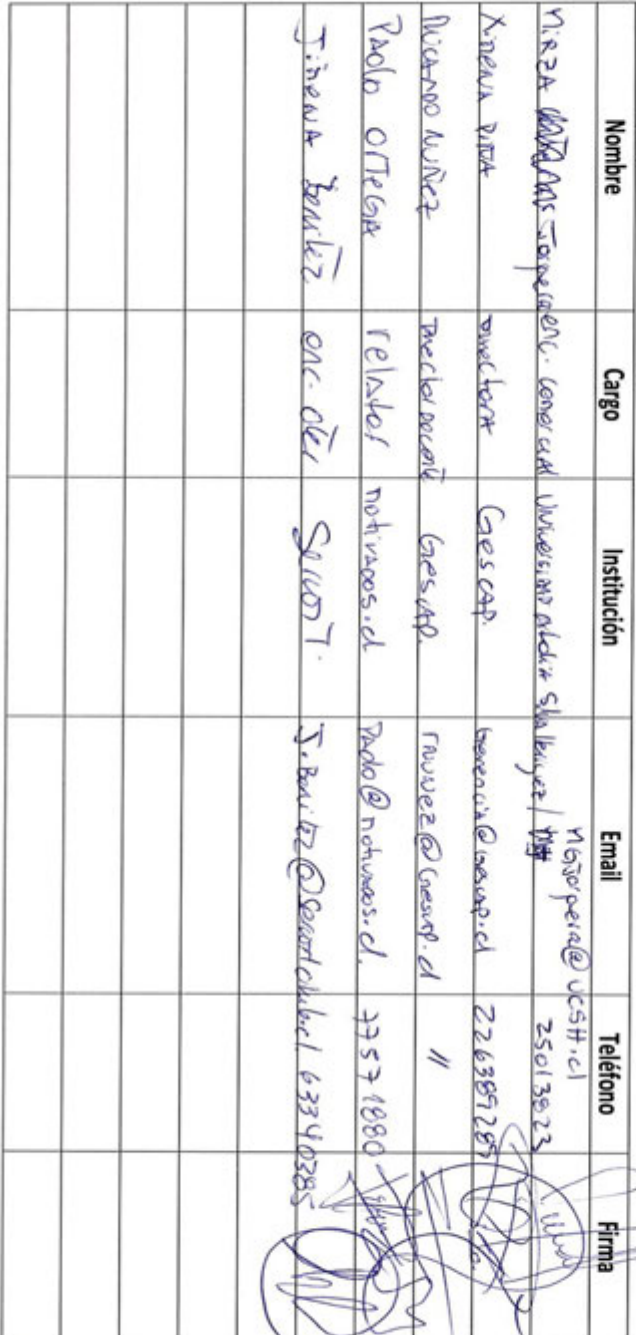 Nombre Cargo Institución Email Teléfono Firma
MIRZA enc. comercial Universidad Silva Henriquez / mgjorpera@ucsh.cl 25013823
Ximena PIÑA Directora Gescap. gerencia@gescap.cl 226389289
Ricardo Nuñez Director docente Gescap. rnunez@gescap.cl "
Paolo ORTEGA relator motivados.cl Paolo@motivados.cl. 77571880
Jimena Benitez enc. otec 63340385